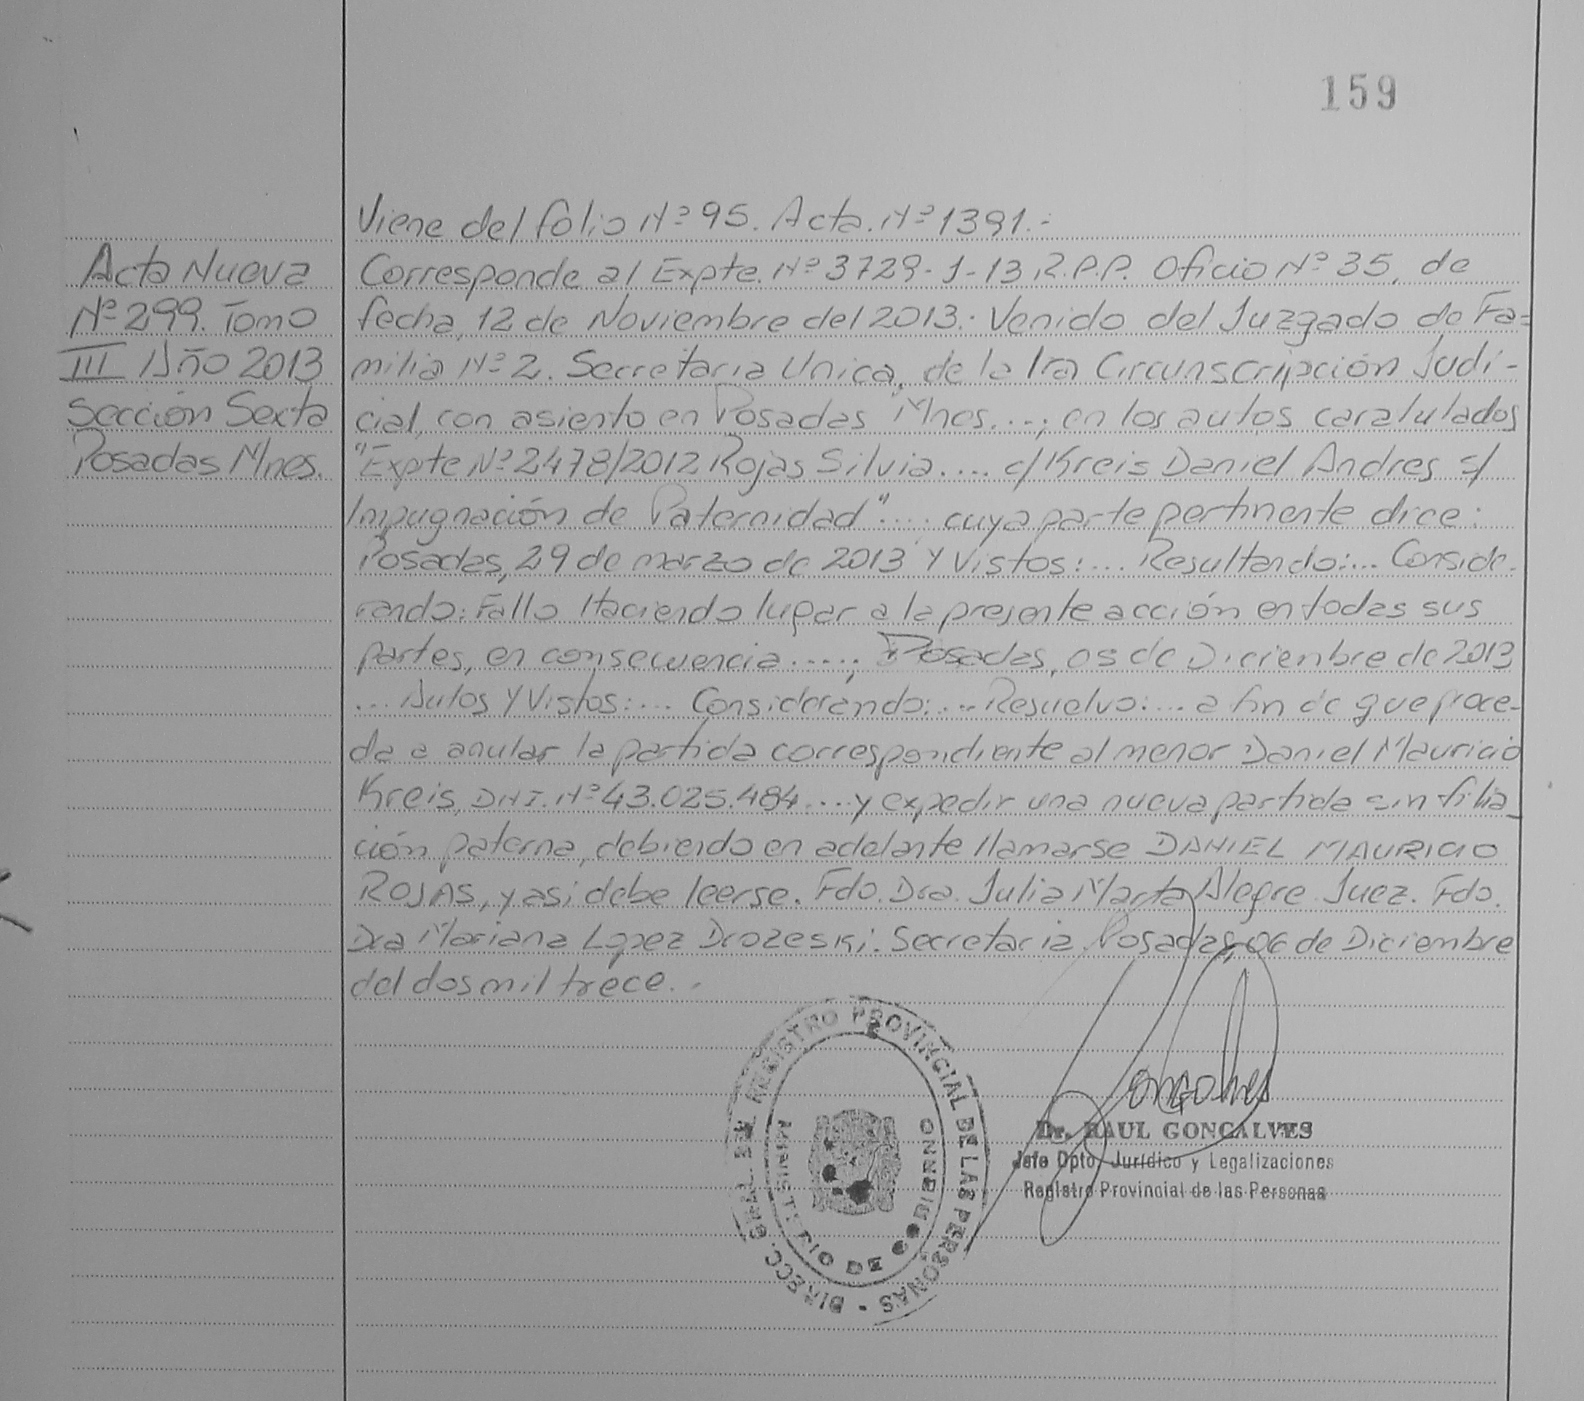 159
Viene del folio Nº 95. Acta. Nº 1391.-
Acta Nueva
Nº 299. Tomo
III Año 2013
Sección Sexta
Posadas Mnes.
Corresponde al Expte. Nº 3729-1-13 R.P.P. Oficio Nº 35, de
fecha, 12 de Noviembre del 2013.- Venido del Juzgado de Fa=
milia Nº 2. Secretaria Unica, de la 1ra Circunscripción Judi-
cial, con asiento en Posadas Mnes...; en los autos caratulados
"Expte Nº 2478/2012 Rojas Silvia.... c/ Kreis Daniel Andres s/
Impugnación de Paternidad"...; cuya parte pertinente dice:
Posadas, 29 de marzo de 2013 Y Vistos:... Resultando:... Conside-
rando: Fallo Haciendo lugar a la presente acción en todas sus
partes, en consecuencia.....; Posadas, 05 de Diciembre de 2013
... Autos Y Vistos:... Considerando:... Resuelvo:... a fin de que proce-
da a anular la partida correspondiente al menor Daniel Mauricio
Kreis, DNI. Nº 43.025.484.... y expedir una nueva partida sin filia_
ción paterna, debiendo en adelante llamarse DANIEL MAURICIO
ROJAS, y asi debe leerse. Fdo. Dra. Julia Marta Alegre Juez. Fdo.
Dra Mariana Lopez Drozeski. Secretaria. Posadas, 06 de Diciembre
del dos mil trece..
DIRECC. GRAL. DEL REGISTRO PROVINCIAL DE LAS PERSONAS -
MINISTERIO DE GOBIERNO
Dr. RAUL GONCALVES
Jefe Dpto. Jurídico y Legalizaciones
Registro Provincial de las Personas